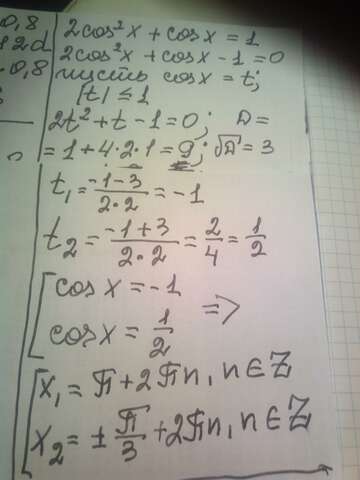 0,8
2cos²x + cosx = 1
2.d
2cos²x + cosx - 1 = 0
0,8
пусть cosx = t;
|t| ≤ 1
2t² + t - 1 = 0; D =
= 1 + 4·2·1 = 9; √D = 3
t₁ = (-1-3)/(2·2) = -1
t₂ = (-1+3)/(2·2) = 2/4 = 1/2
[cosx = -1
=>
cosx = 1/2
[x₁ = π + 2πn, n ∈ Z
x₂ = ± π/3 + 2πn, n ∈ Z